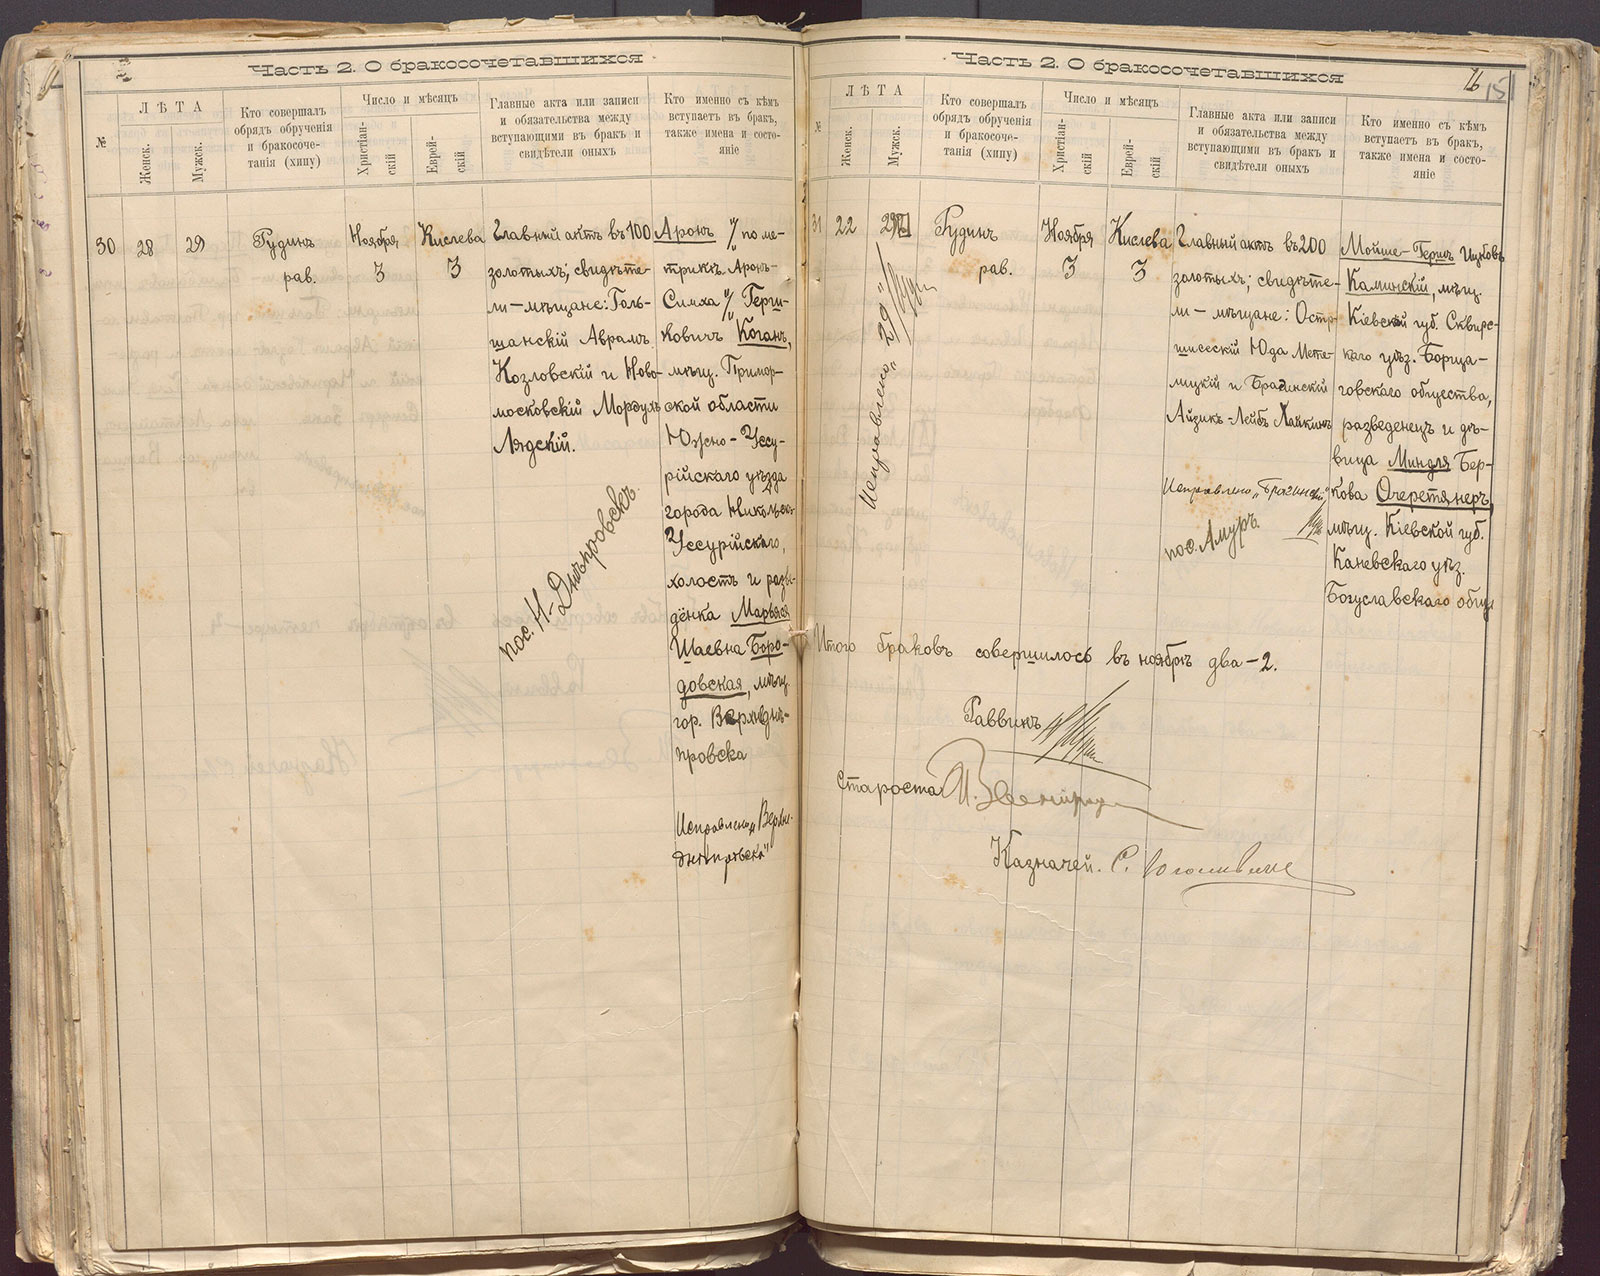 Часть 2. О бракосочетавшихся
№
ЛѢТА
Женск.
Мужск.
Кто совершалъ
обрядъ обрученія
и бракосоче-
танія (хипу)
Число и мѣсяцъ
Христіан-
скій
Еврей-
скій
Главные акта или записи
и обязательства между
вступающими въ бракъ и
свидѣтели оныхъ
Кто именно съ кѣмъ
вступаетъ въ бракъ,
также имена и состо-
яніе
30
28
29
Рудинъ
рав.
Ноября
3
Кислева
3
Главный актъ въ 100
золотыхъ; свидѣте-
ли – мѣщане: Голь-
шанскій Аврамъ
Козловскій и Ново-
московскій Мордухъ
Лядскій.
пос. Н-Днѣпровскъ.
Аронъ "/„ по ме-
трикѣ Аронъ-
Симха "/„ Герш-
ковичъ Коганъ,
мѣщ. Примор-
ской области
Южно-Уссу-
рійскаго уѣзда
города Никольск-
Уссурійскаго,
холостъ и разве-
дёнка Марьяся
Шаевна Боро-
довская, мѣщ.
гор. Верхнеднѣ-
провска
Исправлено „Верхне-
днѣпровска"
Часть 2. О бракосочетавшихся
16
151
№
ЛѢТА
Женск.
Мужск.
Кто совершалъ
обрядъ обрученія
и бракосоче-
танія (хипу)
Число и мѣсяцъ
Христіан-
скій
Еврей-
скій
Главные акта или записи
и обязательства между
вступающими въ бракъ и
свидѣтели оныхъ
Кто именно съ кѣмъ
вступаетъ въ бракъ,
также имена и состо-
яніе
31
22
29
Исправлено „29"
Рудинъ
рав.
Ноября
3
Кислева
3
Главный актъ въ 200
золотыхъ; свидѣте-
ли – мѣщане: Остр-
Юда Мете-
лицкій и Брагинскій
Айзикъ-Лейбъ Хайкинъ
Исправлено „Брагинскій"
пос. Амуръ.
Мойше-Гершъ Ицковъ
Каминскій, мѣщ.
Кіевской губ. Сквирс-
каго уѣз. Борща-
говскаго общества,
разведенецъ и дѣ-
вица Миндля Бер-
кова Очеретянеръ,
мѣщ. Кіевской губ.
Каневскаго уѣз.
Богуславскаго общ.
Итого браковъ совершилось въ ноябрѣ два – 2.
Раввинъ
Староста
Казначей. С.